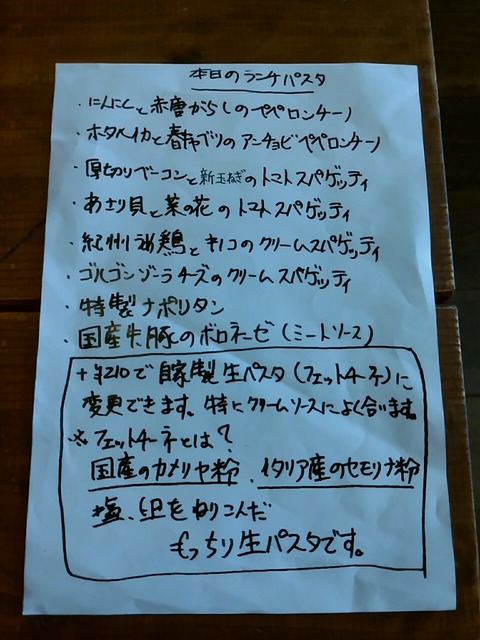 本日のランチパスタ
・にんにくと赤唐がらしのペペロンチーノ
・ホタルイカと春キャベツのアンチョビペペロンチーノ
・厚切りベーコンと新玉ねぎのトマトスパゲッティ
・あさり貝と菜の花のトマトスパゲッティ
・紀州うめ鶏とキノコのクリームスパゲッティ
・ゴルゴンゾーラチーズのクリームスパゲッティ
・特製ナポリタン
・国産牛豚のボロネーゼ(ミートソース)
+¥210で自家製生パスタ(フェットチーネ)に
変更できます。特にクリームソースによく合います。
※フェットチーネとは?
国産のカメリヤ粉、イタリア産のセモリナ粉
塩、卵をねりこんだ
もっちり生パスタです。